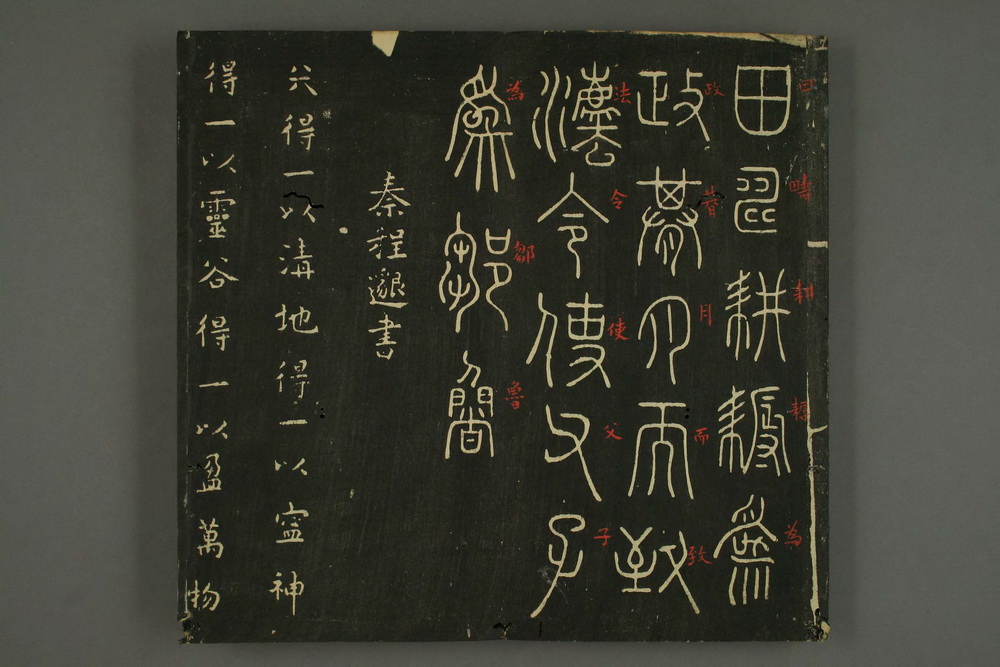 田疇耕耨為
田疇耕耨為
政朞月而致
政朞月而致
法令使父子
法令使父子
為鄒魯
為鄒魯
秦程邈書
天得一以清地得一以寍神
得一以靈谷得一以盈萬物